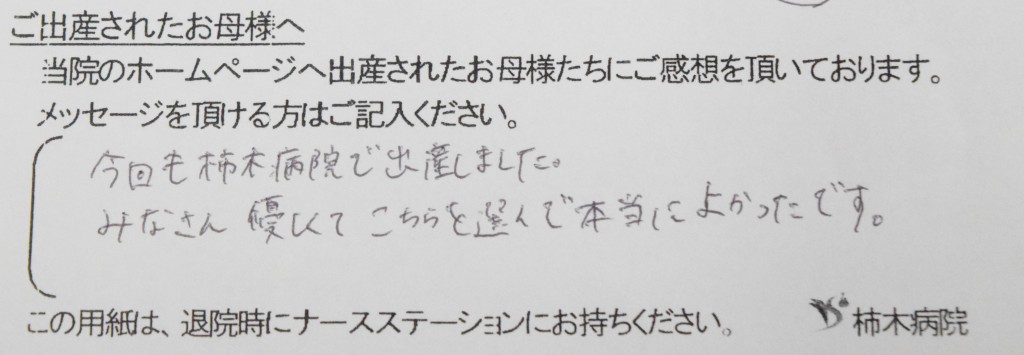 ご出産されたお母様へ
当院のホームページへ出産されたお母様たちにご感想を頂いております。
メッセージを頂ける方はご記入ください。
今回も柿木病院で出産しました。
みなさん 優しくて こちらを選んで本当によかったです。
この用紙は、退院時にナースステーションにお持ちください。 柿木病院